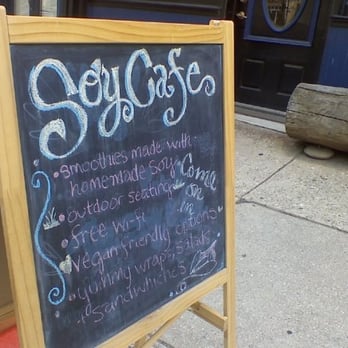 Soy Cafe
smoothies made with
homemade soy
outdoor seating
free wi-fi
vegan friendly options
yummy wraps, salads
+ Sandwhiches
Come
on
in